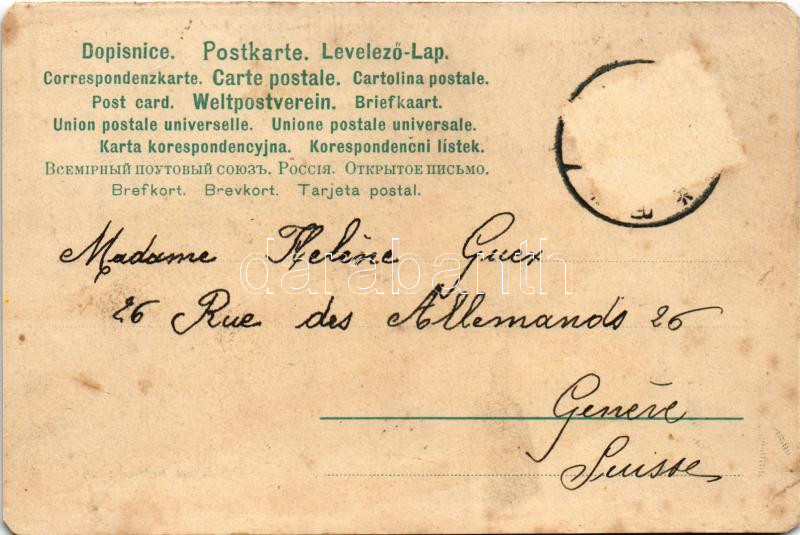 Dopisnice. Postkarte. Levelező-Lap.
Correspondenzkarte. Carte postale. Cartolina postale.
Post card. Weltpostverein. Briefkaart.
Union postale universelle. Unione postale universale.
Karta korespondencyjna. Korespondenčni lístek.
Всемірный поутовый союзъ. Россія. Открытое письмо.
Brefkort. Brevkort. Tarjeta postal.
Madame Helène Guex
darabanth
26 Rue des Allemands 26
Genève
Suisse